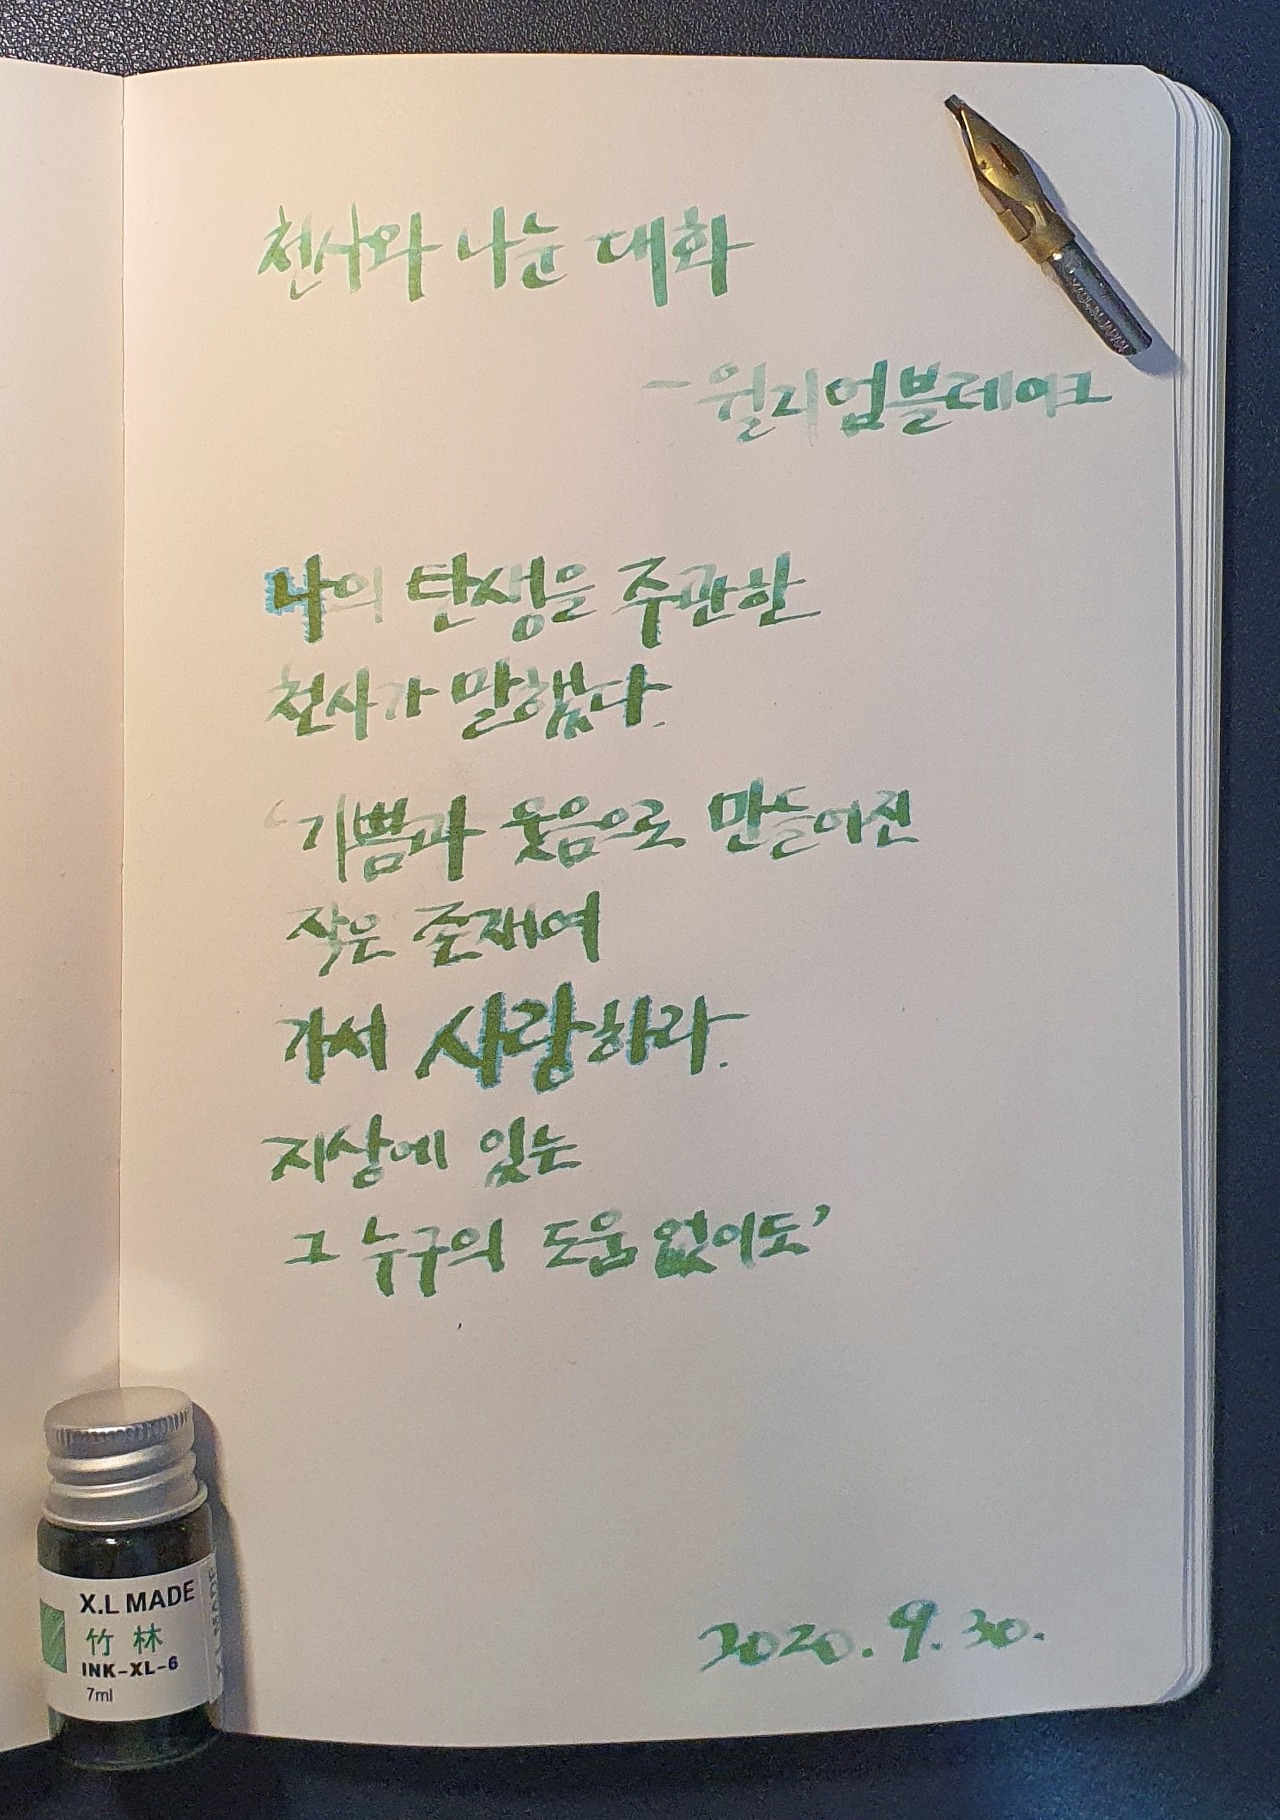 천사와 나눈 대화
- 윌리엄블레이크
나의 탄생을 주관한
천사가 말했다.
'기쁨과 웃음으로 만들어진
작은 존재여
가서 사랑하라.
지상에 있는
그 누구의 도움 없이도'
2020. 9. 30.
X.L MADE
竹 林
INK-XL-6
7ml